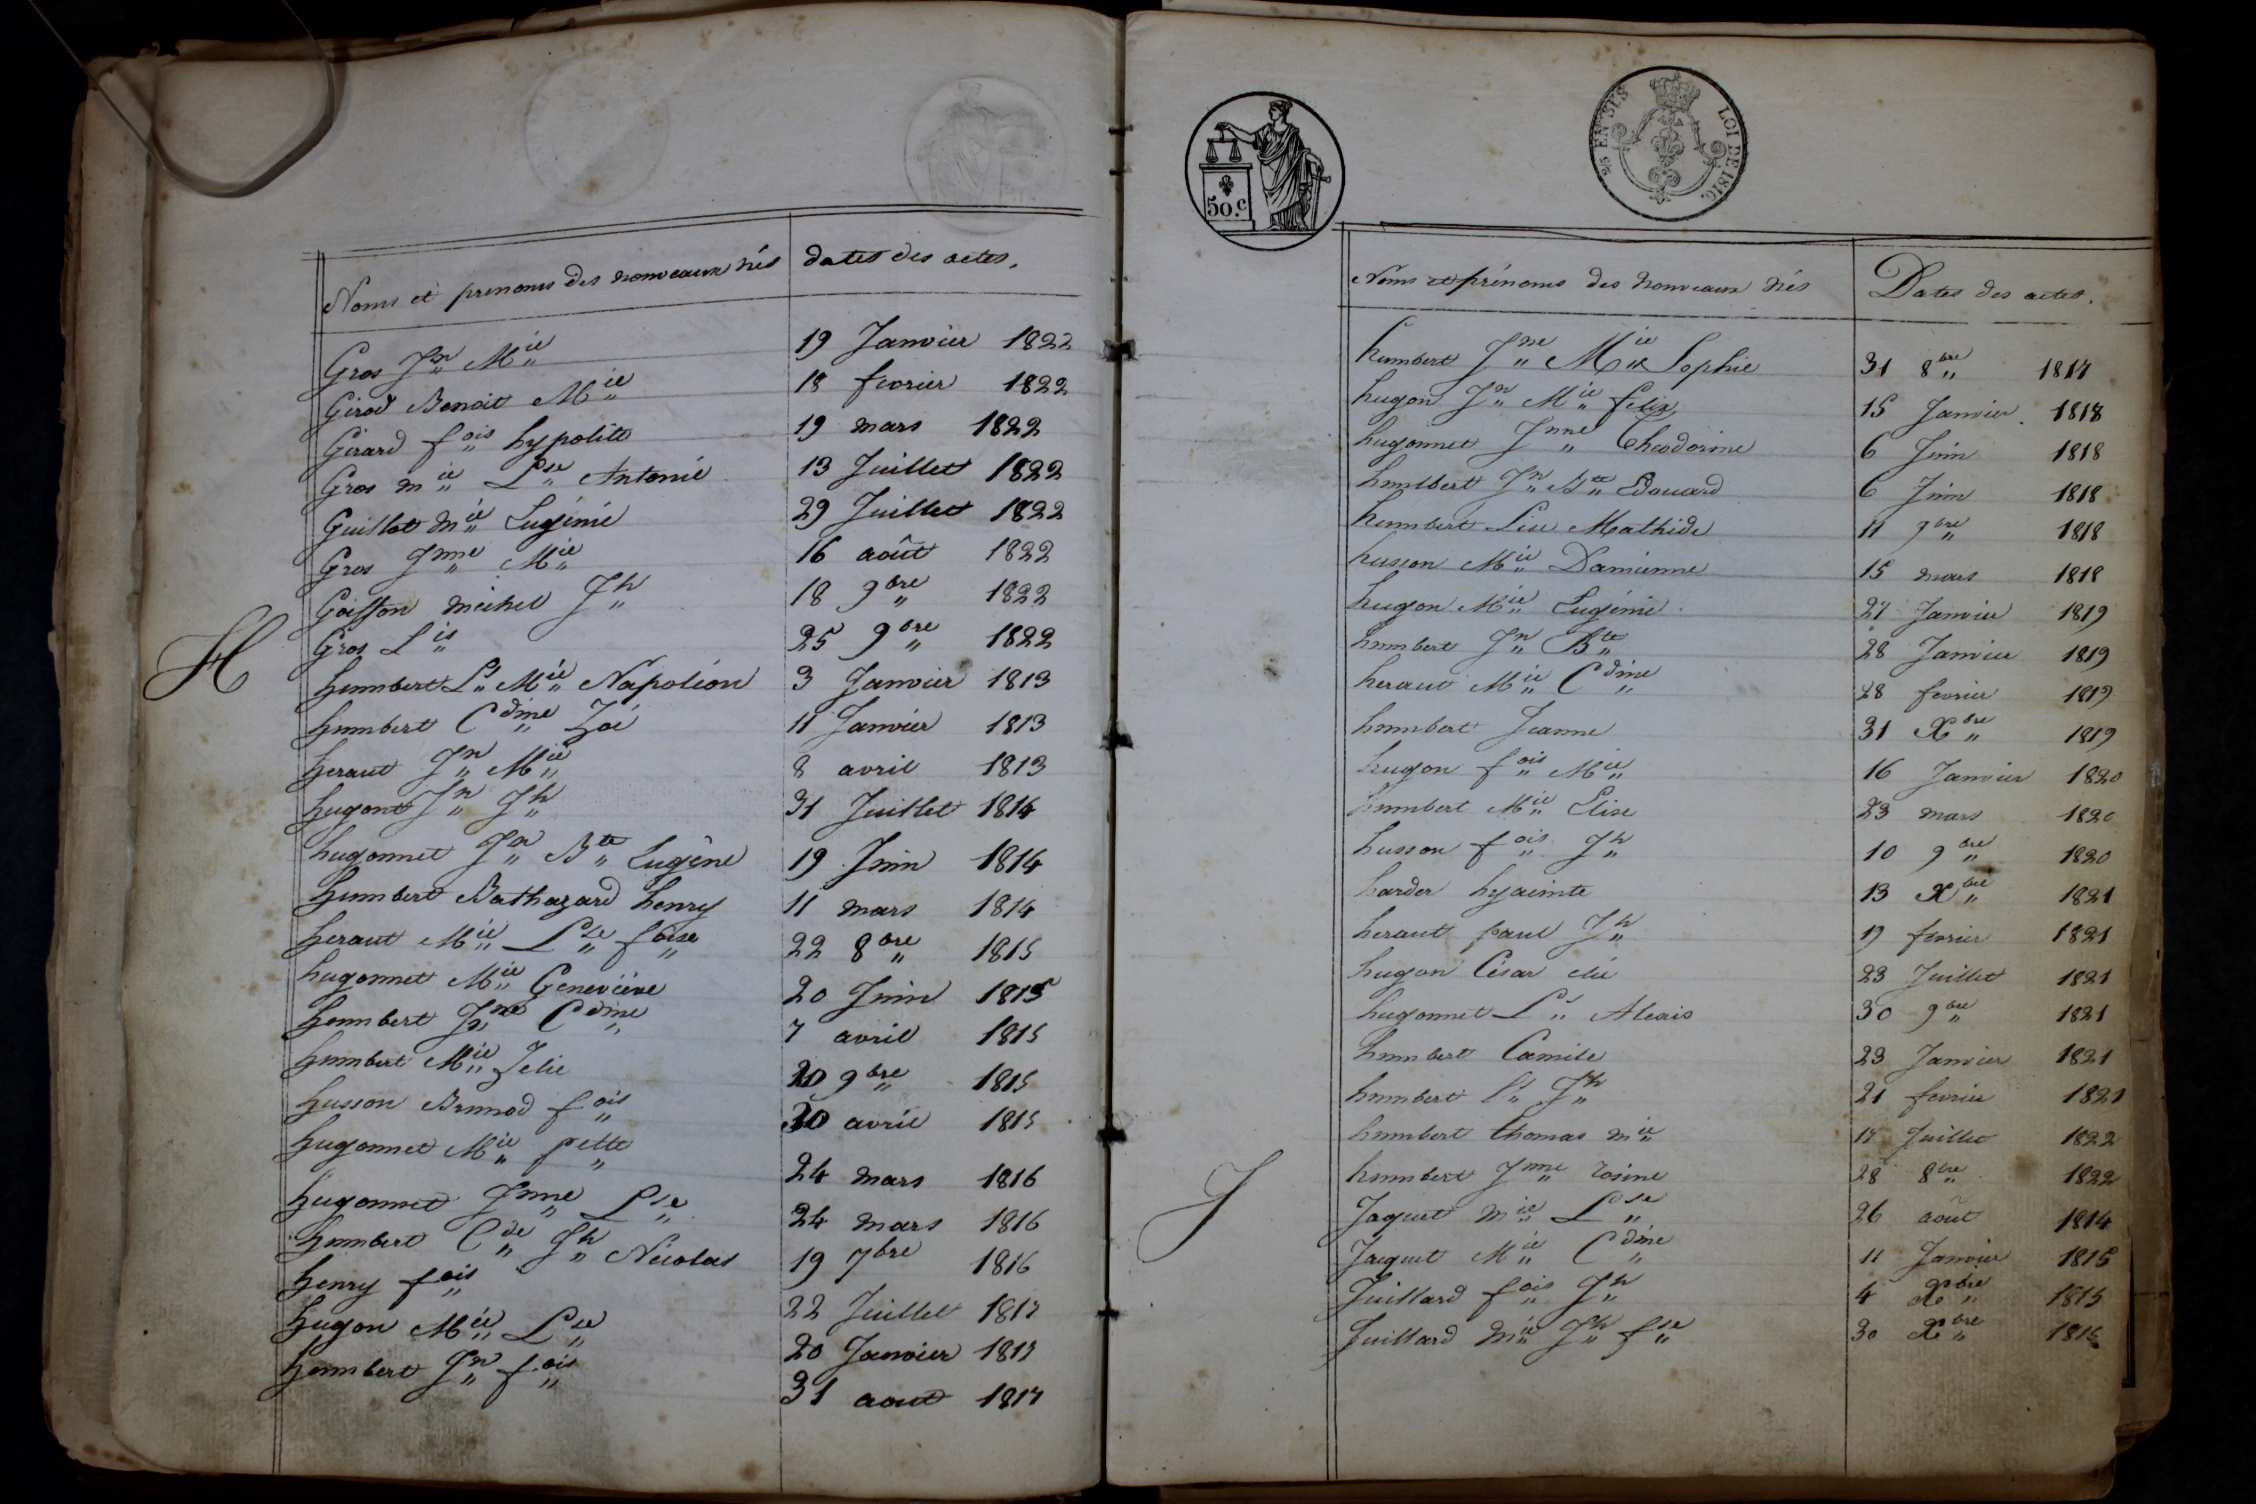 Noms et prenoms des nouveaux nés dates des actes.
Gros Jn Mie 19 Janvier 1822
Girod Benoit Mie 18 fevrier 1822
Girard fois hypolite 19 mars 1822
Gros mie Lse Antonie 13 Juillet 1822
Guillot mie Eugénie 29 Juillet 1822
Gros Jnne Mie 16 août 1822
Goiffon michel Jh 18 9bre 1822
Gros Lis 25 9bre 1822
H
humbert Ls Mie Napoléon 3 Janvier 1813
humbert Cdine Zoé 11 Janvier 1813
heraut Jn Mie 8 avril 1813
hugont Jn Jh 31 Juillet 1814
hugonnet Jn Bte Eugène 19 Juin 1814
humbert Bathazard henry 11 mars 1814
heraut Mie Lse foise 22 8bre 1815
hugonnet Mie Geneviève 20 Juin 1815
humbert Jne Cdine 7 avril 1815
humbert Mie Zelie 20 9bre 1815
husson Brunod fois 30 avril 1815
hugonnet Mie pette 24 mars 1816
hugonnet Jnne Lse 24 mars 1816
humbert Cde Jh Nicolas 19 7bre 1816
henry fois 22 Juillet 1817
hugon Mie Lse 20 Janvier 1817
humbert Jn fois 31 aout 1817
50.c
EN SUS LOI DE 1816.
Noms et prénoms des nouveaux nés Dates des actes.
humbert Jne Mie Sophie 31 8bre 1817
hugon Jn Mie felix 15 Janvier 1818
hugonnet Jnne Theodorine 6 Juin 1818
humbert Jn Bte Edouard 6 Juin 1818
humbert Lise Mathide 11 9bre 1818
husson Mie Damienne 15 mars 1818
hugon Mie Eugénie 27 Janvier 1819
humbert Jn Bte 28 Janvier 1819
heraut Mie Cdine 28 fevrier 1819
humbert Jeanne 31 Xbre 1819
hugon fois Mie 16 Janvier 1820
humbert Mie Elise 23 mars 1820
husson fois Jh 10 9bre 1820
harder hyacinte 13 Xbre 1821
heraut paul Jh 19 fevrier 1821
hugon César elié 23 Juillet 1821
hugonnet Ls Alexis 30 9bre 1821
humbert Camile 23 Janvier 1821
humbert Ls Jh 21 fevrier 1821
humbert thomas mie 17 Juillet 1822
humbert Jnne rosine 28 8bre 1822
J
Jaquet mie Lse 26 août 1814
Jaquet Mie Cdine 11 Janvier 1815
Juillard fois Jh 4 Xbre 1815
Juillard Mie Jh fse 30 Xbre 1815